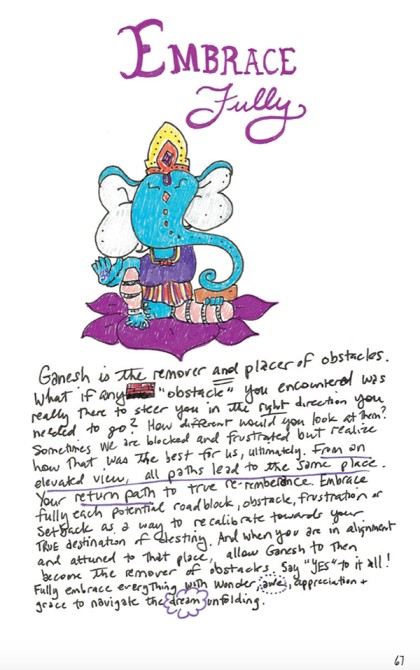 EMBRACE
Fully
Ganesh is the remover and placer of obstacles.
What if any "obstacle" you encountered was
really there to steer you in the right direction you
needed to go? How different would you look at them?
Sometimes we are blocked and frustrated but realize
how that was the best for us, ultimately. From an
elevated view, all paths lead to the same place.
Your return path to true re-memberance. Embrace
fully each potential roadblock, obstacle, frustration or
setback as a way to recalibrate towards your
TRUE destination of destiny. And when you are in alignment
and attuned to that place, allow Ganesh to then
become the remover of obstacles. Say "YES" to it all!
Fully embrace everything with wonder, awe, appreciation +
grace to navigate the dream unfolding.
67